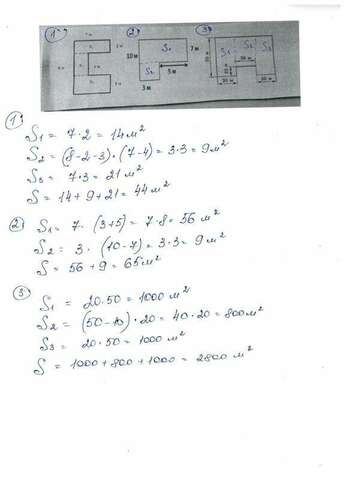 1 2 3
S1 S2 S3
10 м 7 м
S2 5 м
3 м
20 м
20 м 20 м
1)
S1 = 7·2 = 14 м²
S2 = (8-2-3)·(7-4) = 3·3 = 9 м²
S3 = 7·3 = 21 м²
S = 14+9+21 = 44 м²
2) S1 = 7·(3+5) = 7·8 = 56 м²
S2 = 3·(10-7) = 3·3 = 9 м²
S = 56+9 = 65 м²
3) S1 = 20·50 = 1000 м²
S2 = (50-10)·20 = 40·20 = 800 м²
S3 = 20·50 = 1000 м²
S = 1000+800+1000 = 2800 м²